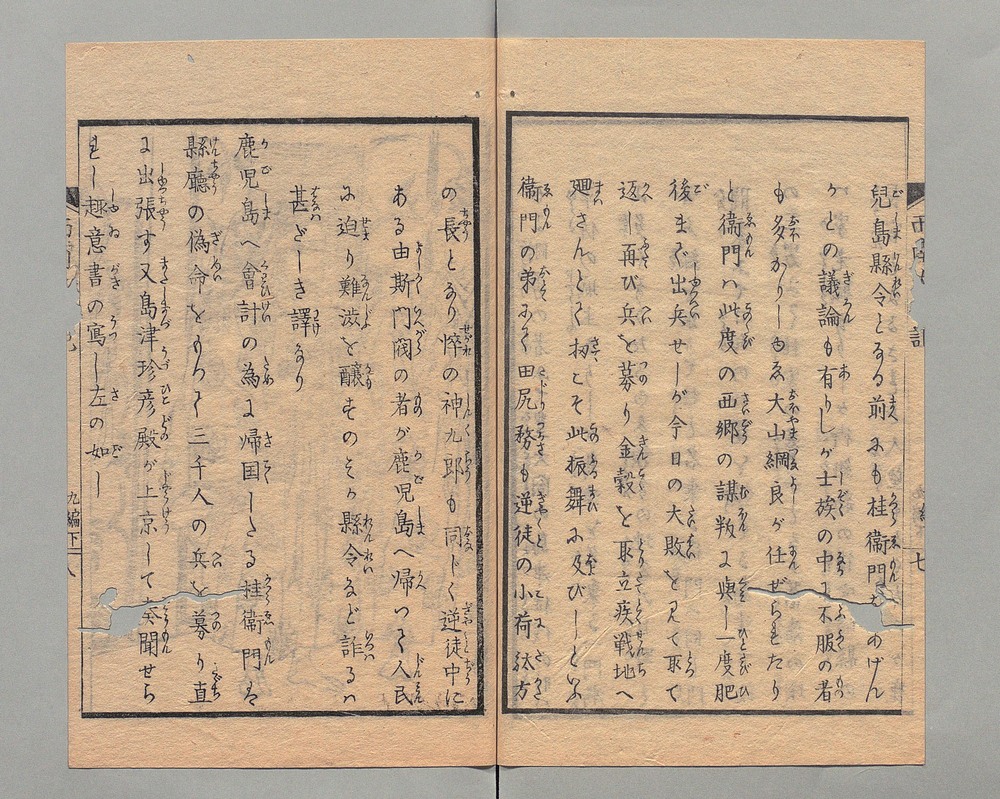 兒島縣令となる前にも桂衛門をのげん
かとの議論も有りしが士族の中に不服の者
も多かりしゆゑ大山綱良が任ぜられたり
と衛門ハ此度の西郷の謀叛に與し一度肥
後まで出兵せしが今日の大敗を見て取て
返へ再び兵を募り金穀を取立疾戦地へ
廻さんとて扨こそ此振舞に及びしといふ
衛門の弟にて田尻務も逆徒の小荷駄方
の長となり悴の神九郎も同じく逆徒中に
ある由斯門閥の者が鹿児島へ帰つて人民
に迫り難渋を醸すのそが縣令など詐るハ
甚だしき譯なり
鹿児島へ會計の為に帰国したる桂衛門は
縣廳の偽命をもつて三千人の兵を募り直
に出張す又島津珍彦殿が上京して奏聞せら
れし趣意書の寫し左の如し
九編下
八
七